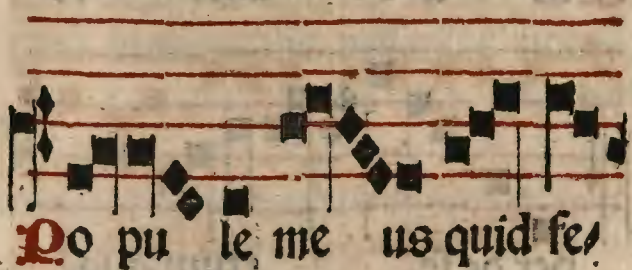 Po pu le me us quid fe/